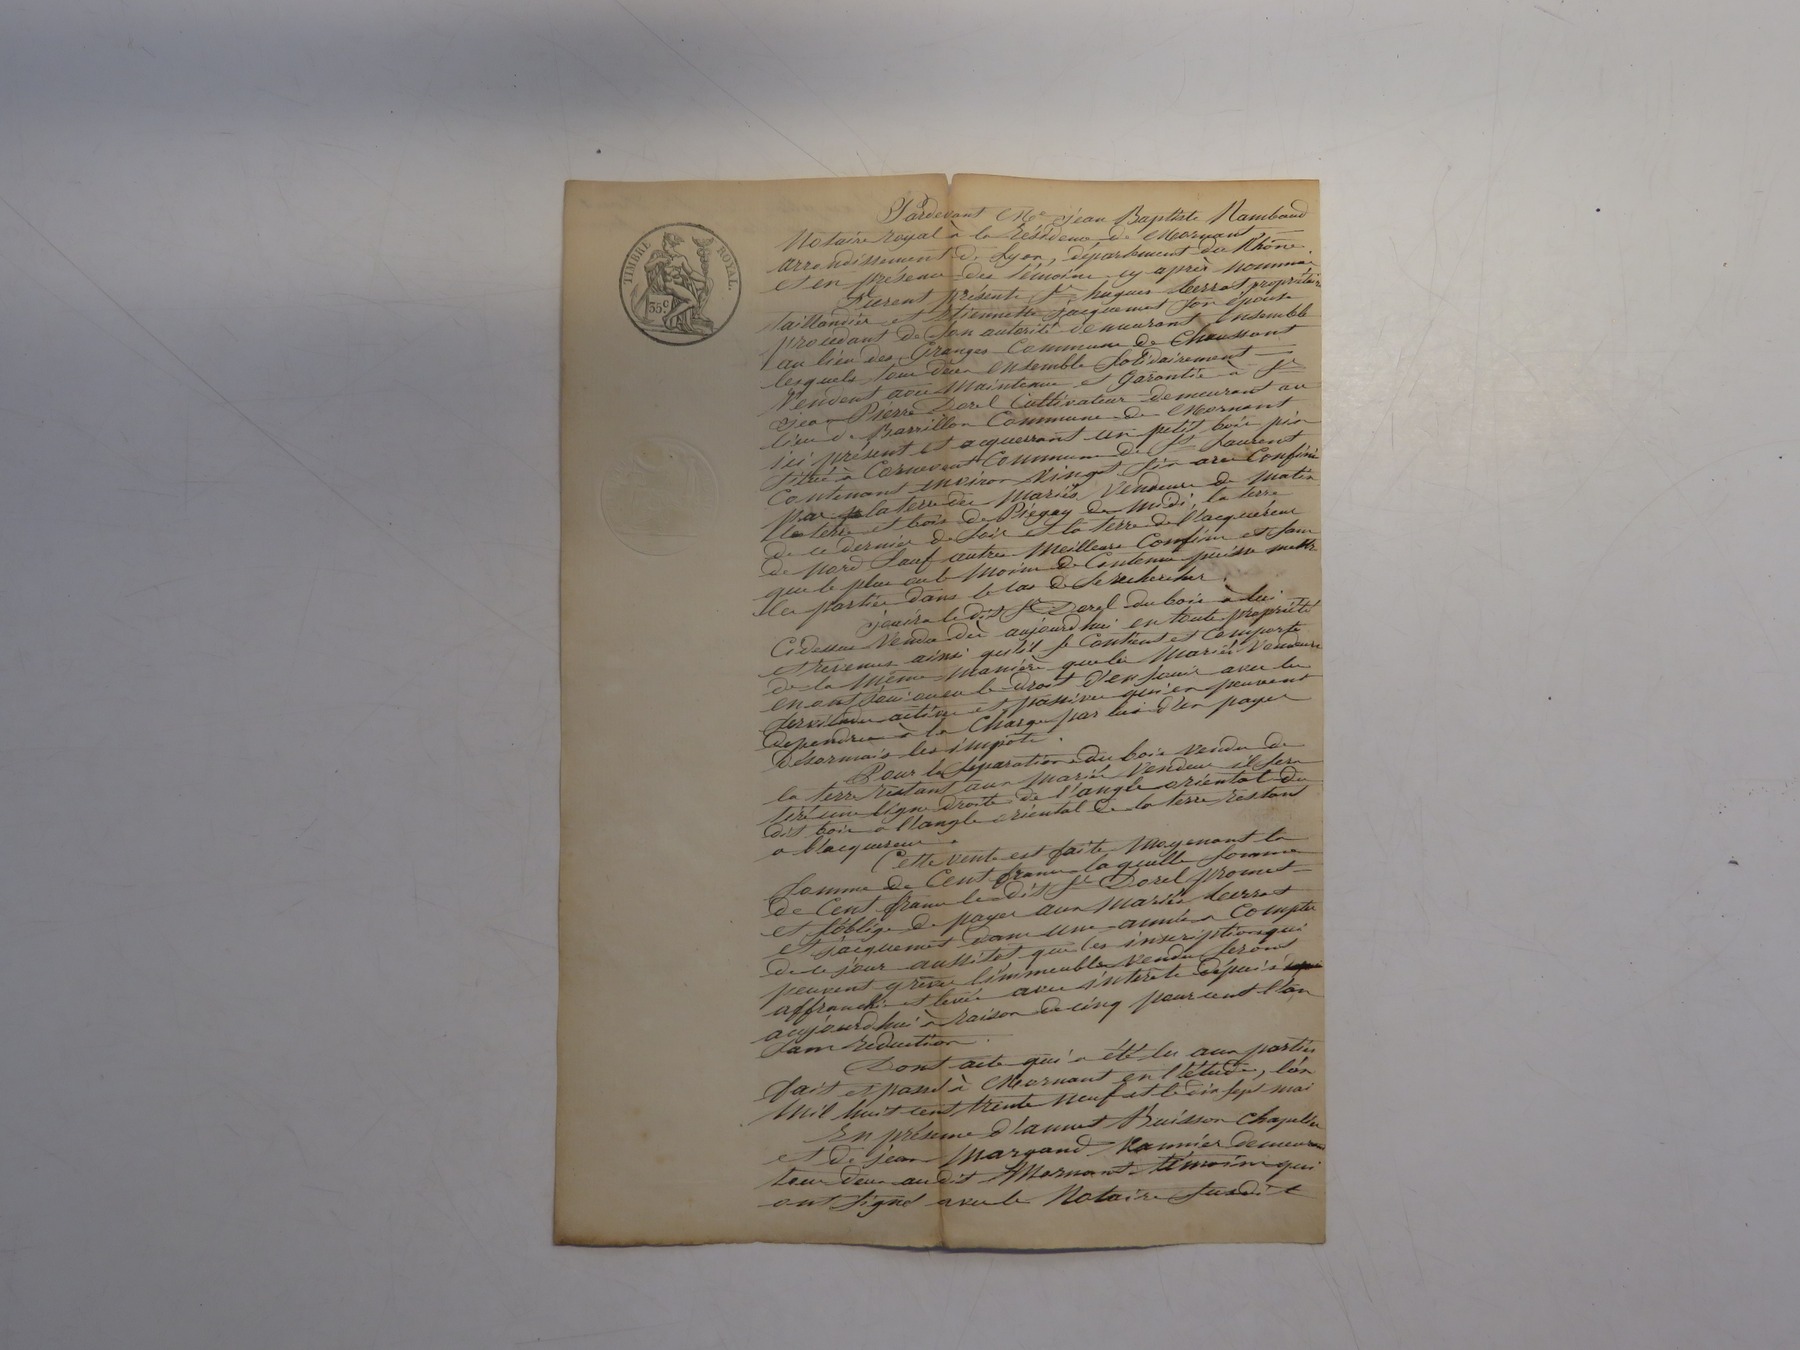 TIMBRE ROYAL.
35 c.
Pardevant Me jean Baptiste Rambaud
Notaire royal à la Résidence de Mornant
arrondissement de Lyon, département du Rhône
et en présence des témoins cy après nommés
furent présents, Sr hugues propriétaire
taillandier et Etiennette jacquemet son épouse
procedant de son autorité demeurant ensemble
au lieu des Granges Commune de Chaussant
lesquels tous deux ensemble solidairement
Vendent avec Maintenue et garantie à Sr
jean Pierre Dorel Cultivateur demeurant au
lieu de Barrillon Commune de Mornant
ici présent et acquerrant un petit bois pin
situé à Cornevent Commune de St Laurent
Contenant environ Vingt six ares Confiné
par la terre des Mariés Vendeurs de Matin
la terre et bois de Piégay de Midi, la terre
de ce dernier de soir et la terre de l'acquéreur
de Nord sauf autres Meilleurs Confins et sans
que le plus ou le Moins de Contenue puisse mettre
les parties dans le cas de se rechercher.
jouira le dit Sr Dorel du bois à lui
Cidessus Vendu dès aujourd'hui en toute propriété
et revenus ainsi qu'il se Contient et Comporte
de la Même Manière que les Mariés Vendeurs
en ont joui ou eu le droit d'en jouir avec les
servitudes actives et passives qui en peuvent
dependre à la Charge par lui d'en payer
désormais les impôts.
Pour la Séparation du bois Vendu de
la terre restant aux Mariés Vendeurs il sera
tiré une ligne droite de l'angle oriental du
dit bois à l'angle oriental de la terre restant
a l'acquereur.
Cette vente est faite Moyenant la
somme de Cent francs laquelle somme
de Cent francs le dit Sr Dorel promet
et s'oblige de payer aux Mariés
et jacquemet dans une année a Compter
de ce jour aussitot que les inscriptions qui
peuvent grever l'immeuble Vendu seront
affranchies et levées avec interets depuis
aujourd'hui à raison de cinq pour cent l'an
sans reduction.
Dont acte qui a été lu aux parties
fait et passé à Mornant en l'étude, l'an
Mil huit cent trente neuf et le dix sept mai
En présence d'annet Buisson Chapellier
et de jean Margand Vannier demeurant
tous deux au dit Mornant témoins qui
ont signé avec le Notaire susdit